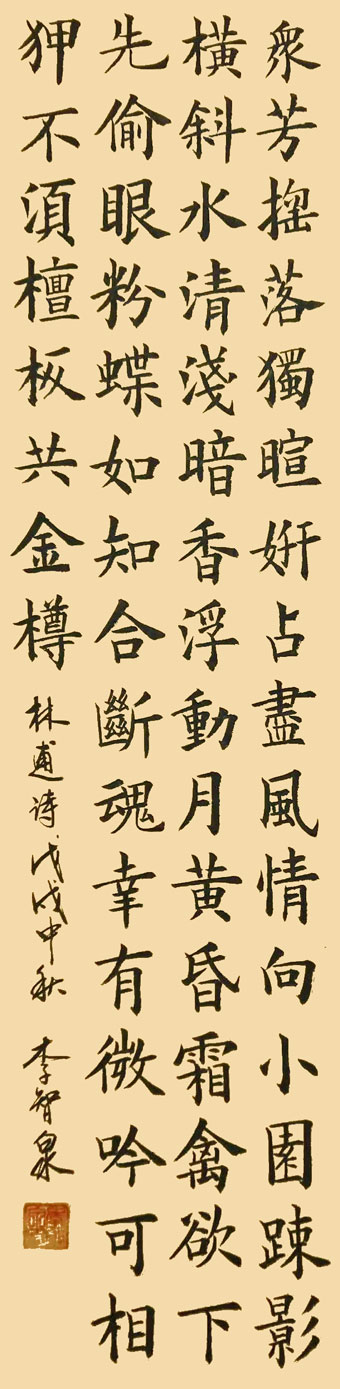 衆芳搖落獨暄姸占盡風情向小園踈影
橫斜水清淺暗香浮動月黃昏霜禽欲下
先偷眼粉蝶如知合斷魂幸有微吟可相
狎不須檀板共金樽
林逋诗戊戌中秋 李智泉